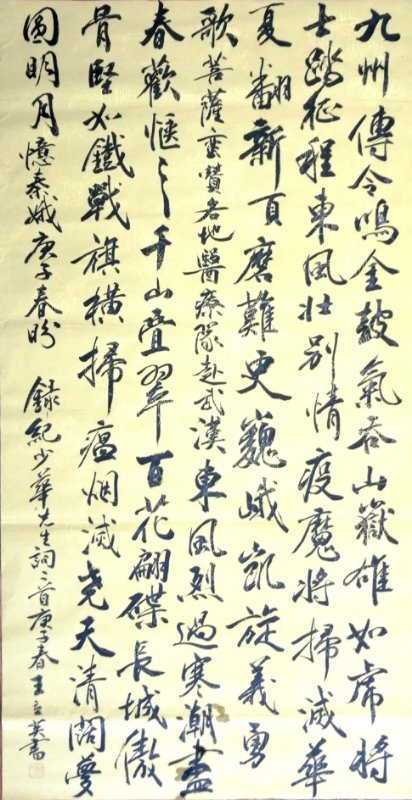 九州傳令鳴金鼓氣吞山嶽雄如虎將
士踏征程東風壯別情疫魔將掃滅華
夏翻新頁磨難更巍峨凱旋義勇
歌菩薩蠻贊各地醫療隊赴武漢東風烈過寒潮盡
春歡愜〻千山疊翠百花翩碟長城傲
骨堅如鐵戰旗橫掃瘟烟滅堯天清闊夢
圓明月憶秦娥庚子春盼 錄紀少華先生詞二首庚子春王立英書